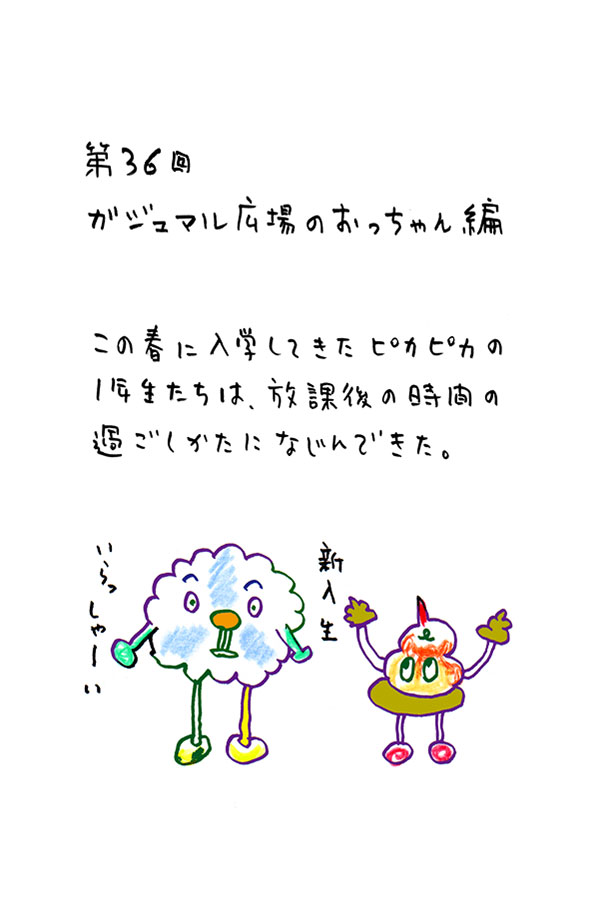 第36回
ガジュマル広場のおっちゃん編
この春に入学してきたピカピカの
1年生たちは、放課後の時間の
過ごしかたになじんできた。
いらっしゃーい
新入生